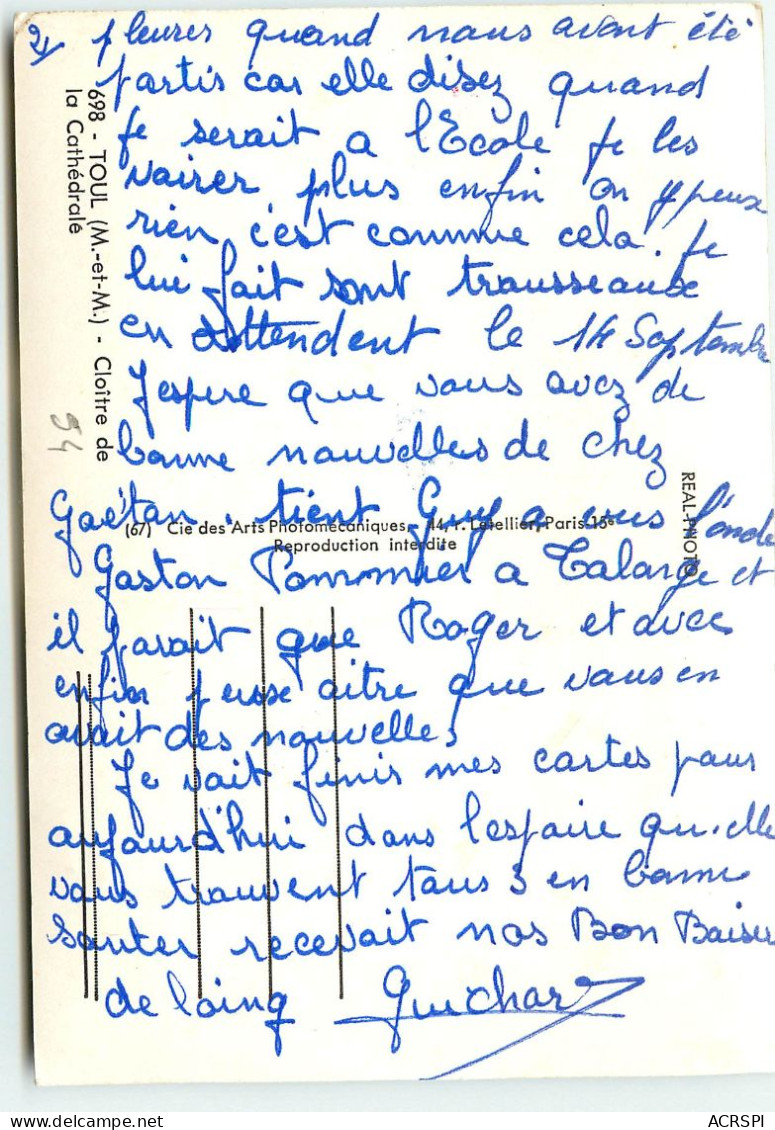 2) pleures quand nous avont été
partis car elle disez quand
je serait a l'Ecole je les
vairer plus enfin on y peux
rien c'est comme cela. je
lui fait sont trausseaux
en attendent le 14 Septembre
J'espere que vous avez de
bonne nouvelles de chez
Gaétan. tient Guy a vus l'oncle
Gaston Pommier a Talange et
il parait que Roger et avec
enfin
que vous en
avait des nouvelles
Je vait finir mes cartes pour
aujourd'hui dans l'espaire qu'elle
vous trouvent tous 3 en bonne
santer recevait nos Bon Baiser
de loing Guichard
698 - TOUL (M.-et-M.) - Cloître de
la Cathédrale
54
REAL-PHOTO
(67) Cie des Arts Photomécaniques, 44, r. Letellier, Paris-15e
Reproduction interdite
ACRSPI